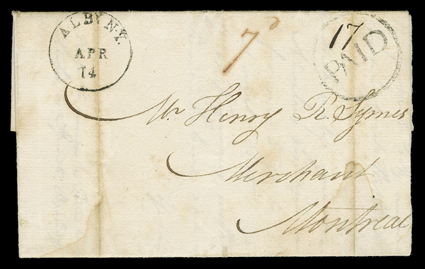 ALBY N.Y.
APR
14
7
17
PAID
Mr Henry R Symes
Merchant
Montreal